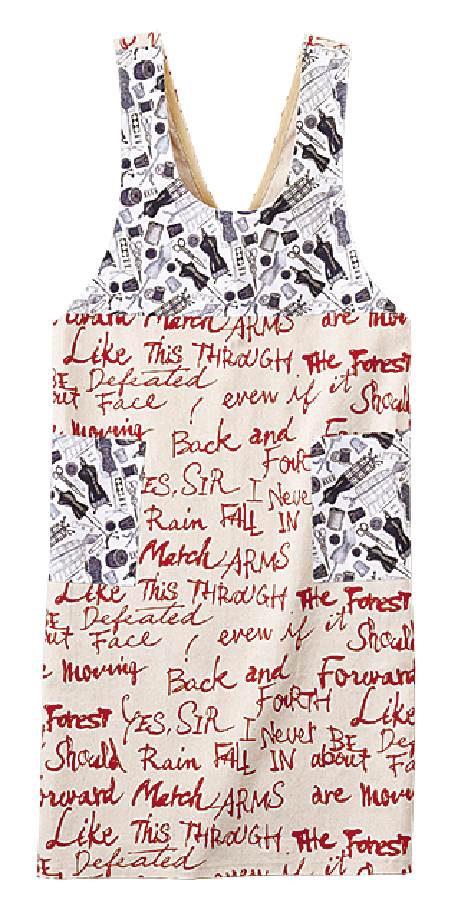 orward March ARMS are mov
Like This THROUGH The Forest
BE Defeated
out Face , even if it Should
e moving Back and
FOURT
ES, SIR I Neve
Rain FALL IN
March ARMS
Like This THROUGH The Forest
BE Defeated
out Face , even if it Should
e moving Back and Forward
FOURTH
Forest YES, SIR I Never BE Like
Should Rain FALL IN about Fa
orward March ARMS are movi
Like This THROUGH The Forest
BE Defeated if it